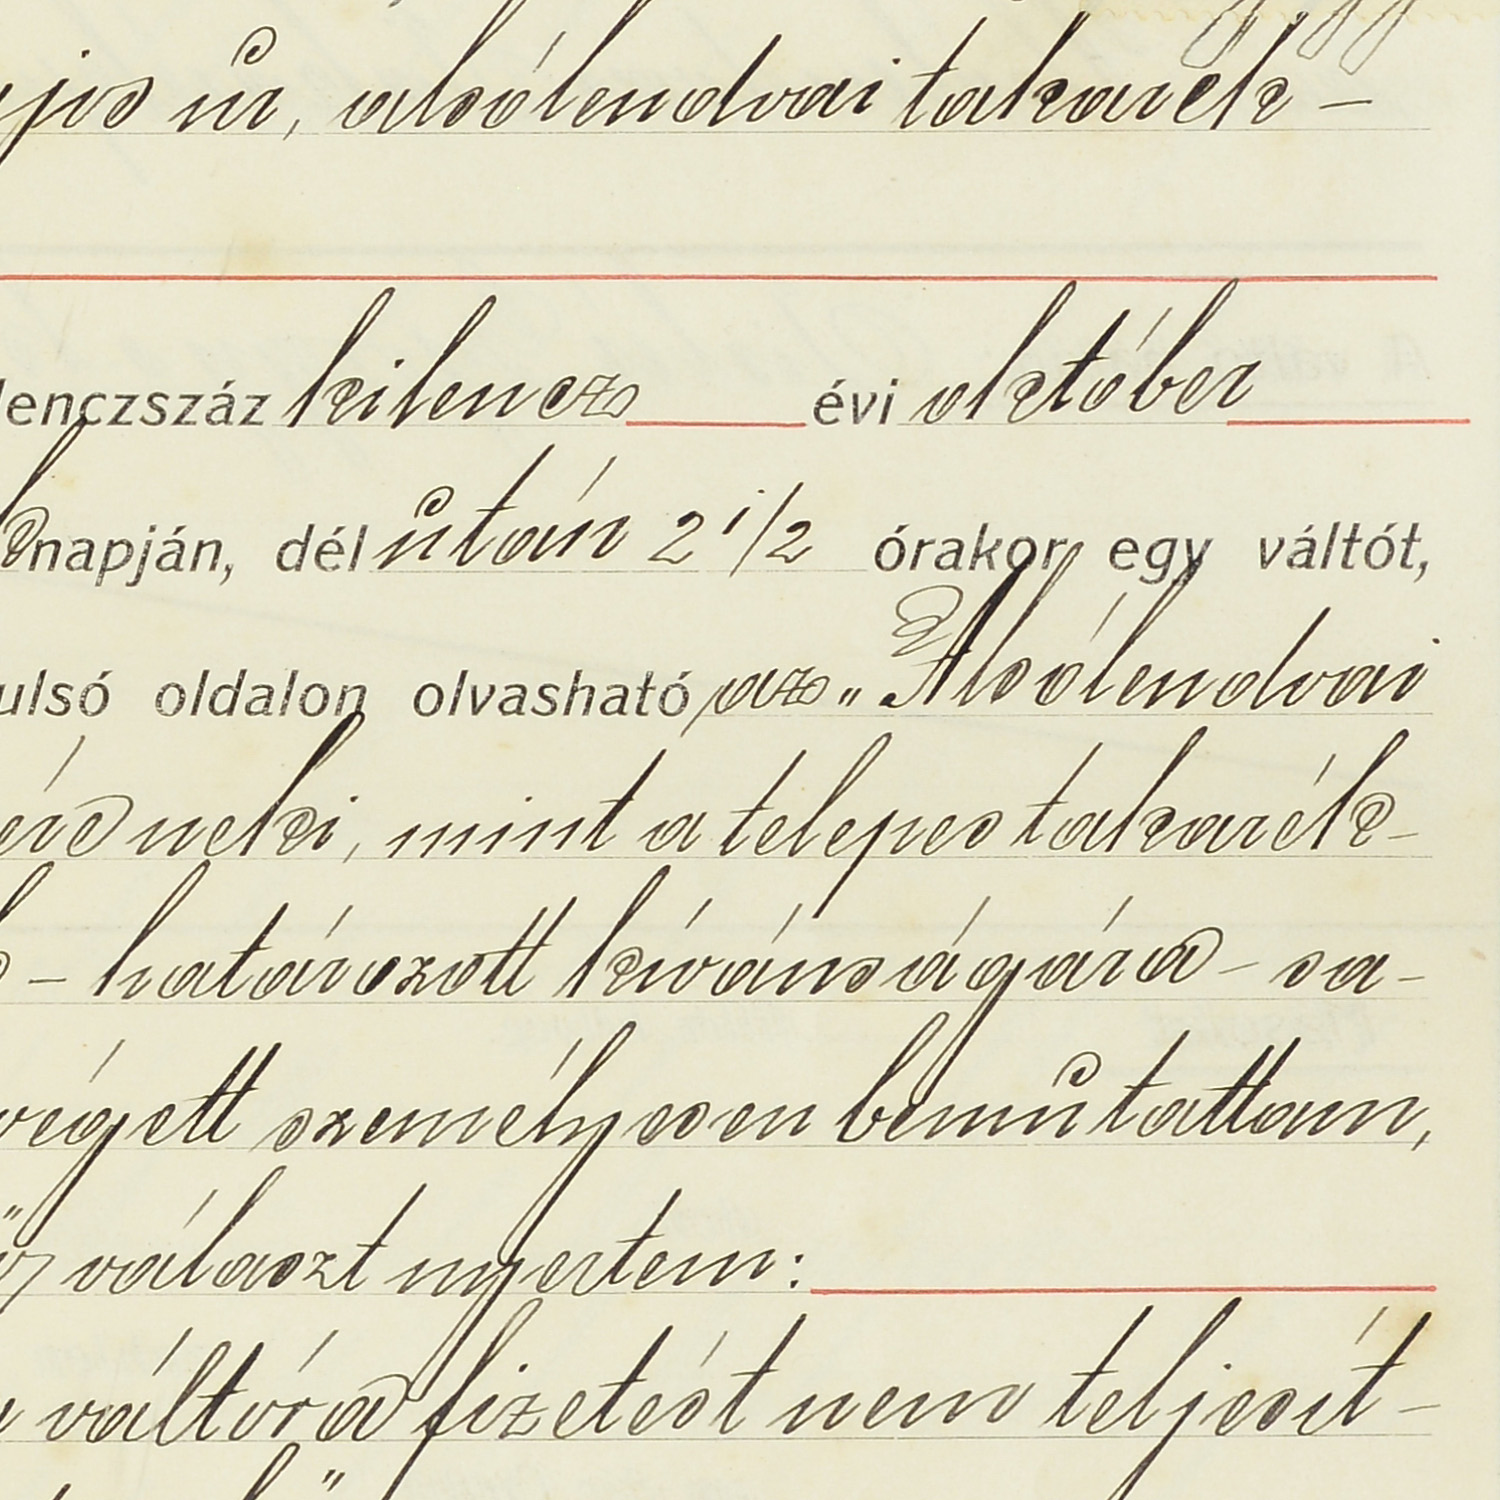 jos úr, alsólendvai takarék-
lenczszáz kilencz évi október
napján, dél után 2 1/2 órakor egy váltót,
ulsó oldalon olvasható az „Alsólendvai
neki, mint a telepes takarék-
- határozott kívánságára - sa-
végett személyesen bemutattam,
választ nyertem:
váltóra fizetést nem teljesít-